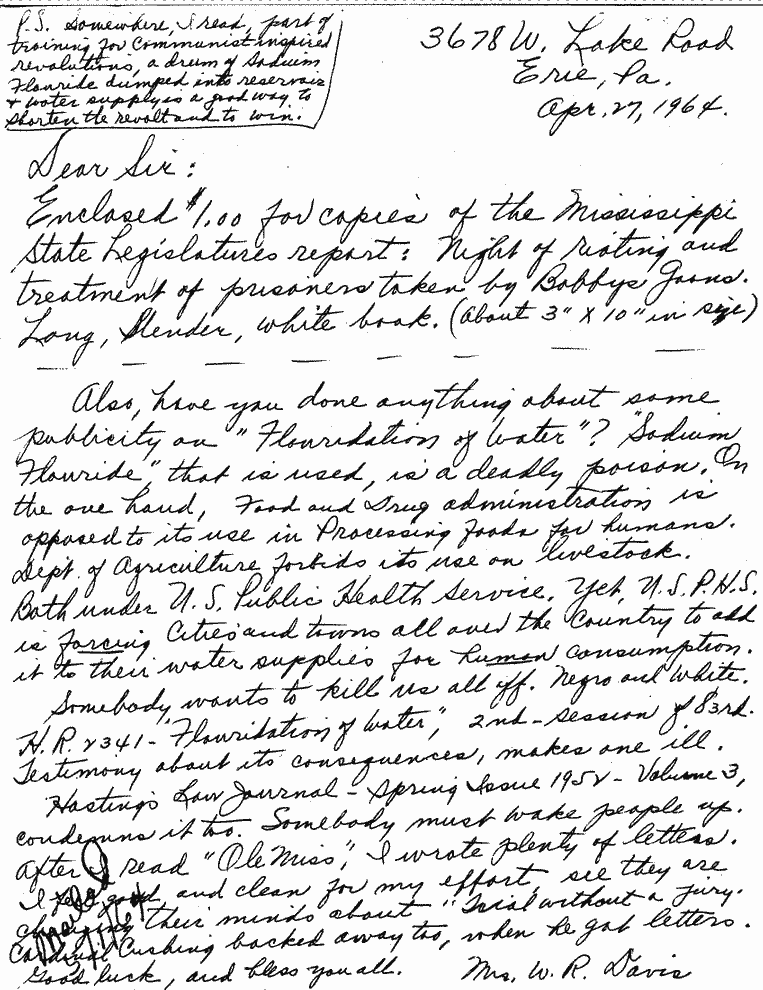 P.S. Somewhere, I read, part of
training for Communist inspired
revolutions, a drum of Sodium
Flouride dumped into reservoir
& water supply is a good way to
shorten the revolt and to win.
3678 W. Lake Road
Erie, Pa.
Apr. 27, 1964.
Dear Sir:
Enclosed $1.00 for copies of the Mississippi
State Legislatures report: Night of rioting and
treatment of prisoners taken by Bobbys Goons.
Long, slender, white book. (About 3" X 10" in size)
Also, have you done anything about some
publicity on "Flouridation of Water"? "Sodium
Flouride", that is used, is a deadly poison. On
the one hand, Food and Drug administration is
opposed to its use in Processing foods for humans.
Dept. of Agriculture forbids its use on livestock.
Both under U.S. Public Health Service. Yet, U.S.P.H.S.
is forcing Cities and towns all over the Country to add
it to their water supplies for human consumption.
Somebody wants to kill us all off. Negro and White.
H.R. 2341 - "Flouridation of Water", 2nd - session of 83rd.
Testimony about its consequences, makes one ill.
Hastings Law Journal - Spring Issue 1952 - Volume 3,
condemns it too. Somebody must wake people up.
After I read "Ole Miss", I wrote plenty of letters.
I feel good, and clean for my effort, see they are
changing their minds about "Trial without a jury.
Cardinal Cushing backed away too, when he got letters.
Good luck, and bless you all. Mrs. W. R. Davis
Mailed